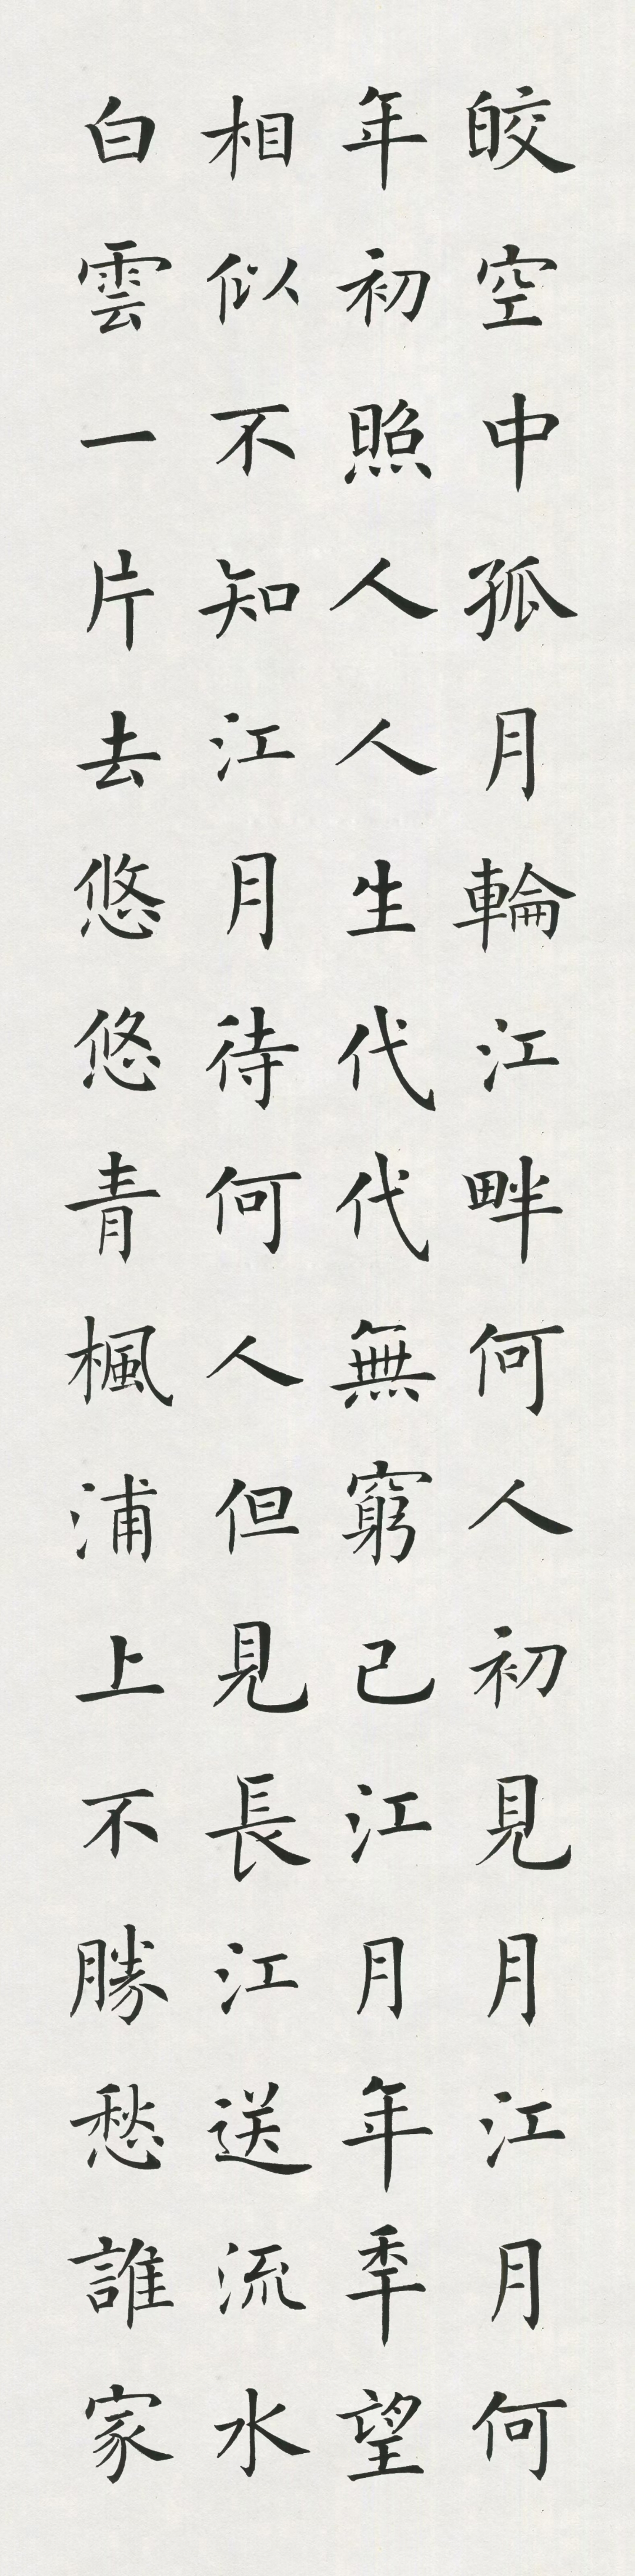 皎空中孤月輪江畔何人初見月江月何
年初照人人生代代無窮已江月年秊望
相似不知江月待何人但見長江送流水
白雲一片去悠悠青楓浦上不勝愁誰家